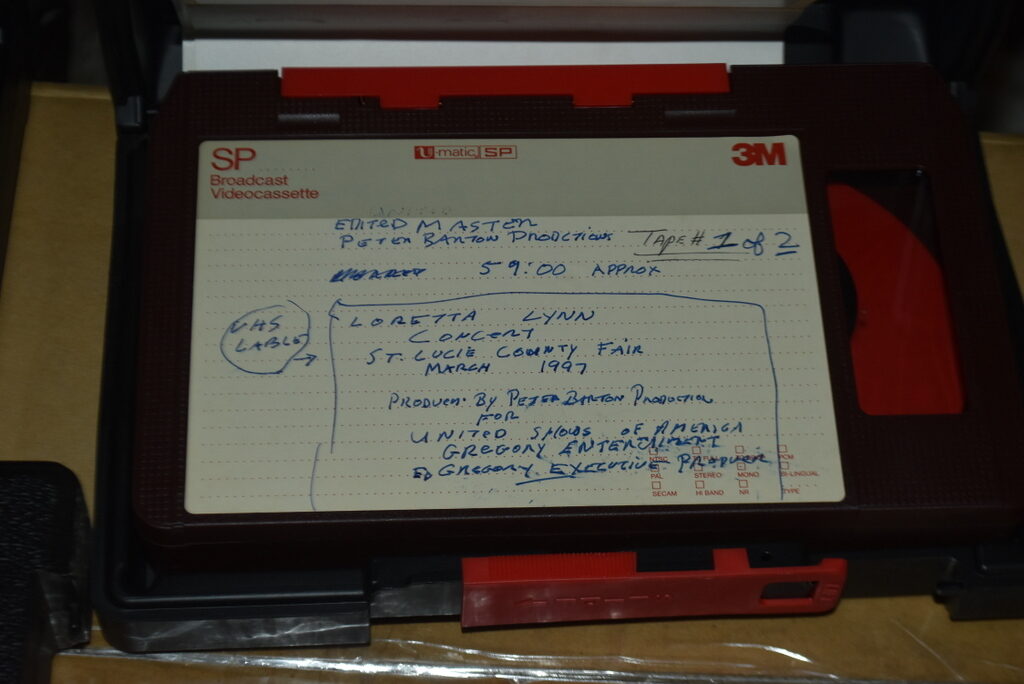 SP
Broadcast
Videocassette
U-matic SP
3M
EDITED MASTER
PETER BARTON PRODUCTIONS
TAPE # 1 of 2
59:00 APPROX
VHS
LABLE
LORETTA LYNN
CONCERT
ST. LUCIE COUNTY FAIR
MARCH 1997
PRODUCER BY PETER BARTON PRODUCTION
FOR
UNITED SHOWS OF AMERICA
GREGORY ENTERTAINMENT
ED GREGORY EXECUTIVE PRODUCER
NTSC PCM
PAL STEREO MONO BI-LINGUAL
SECAM HI BAND NR TYPE